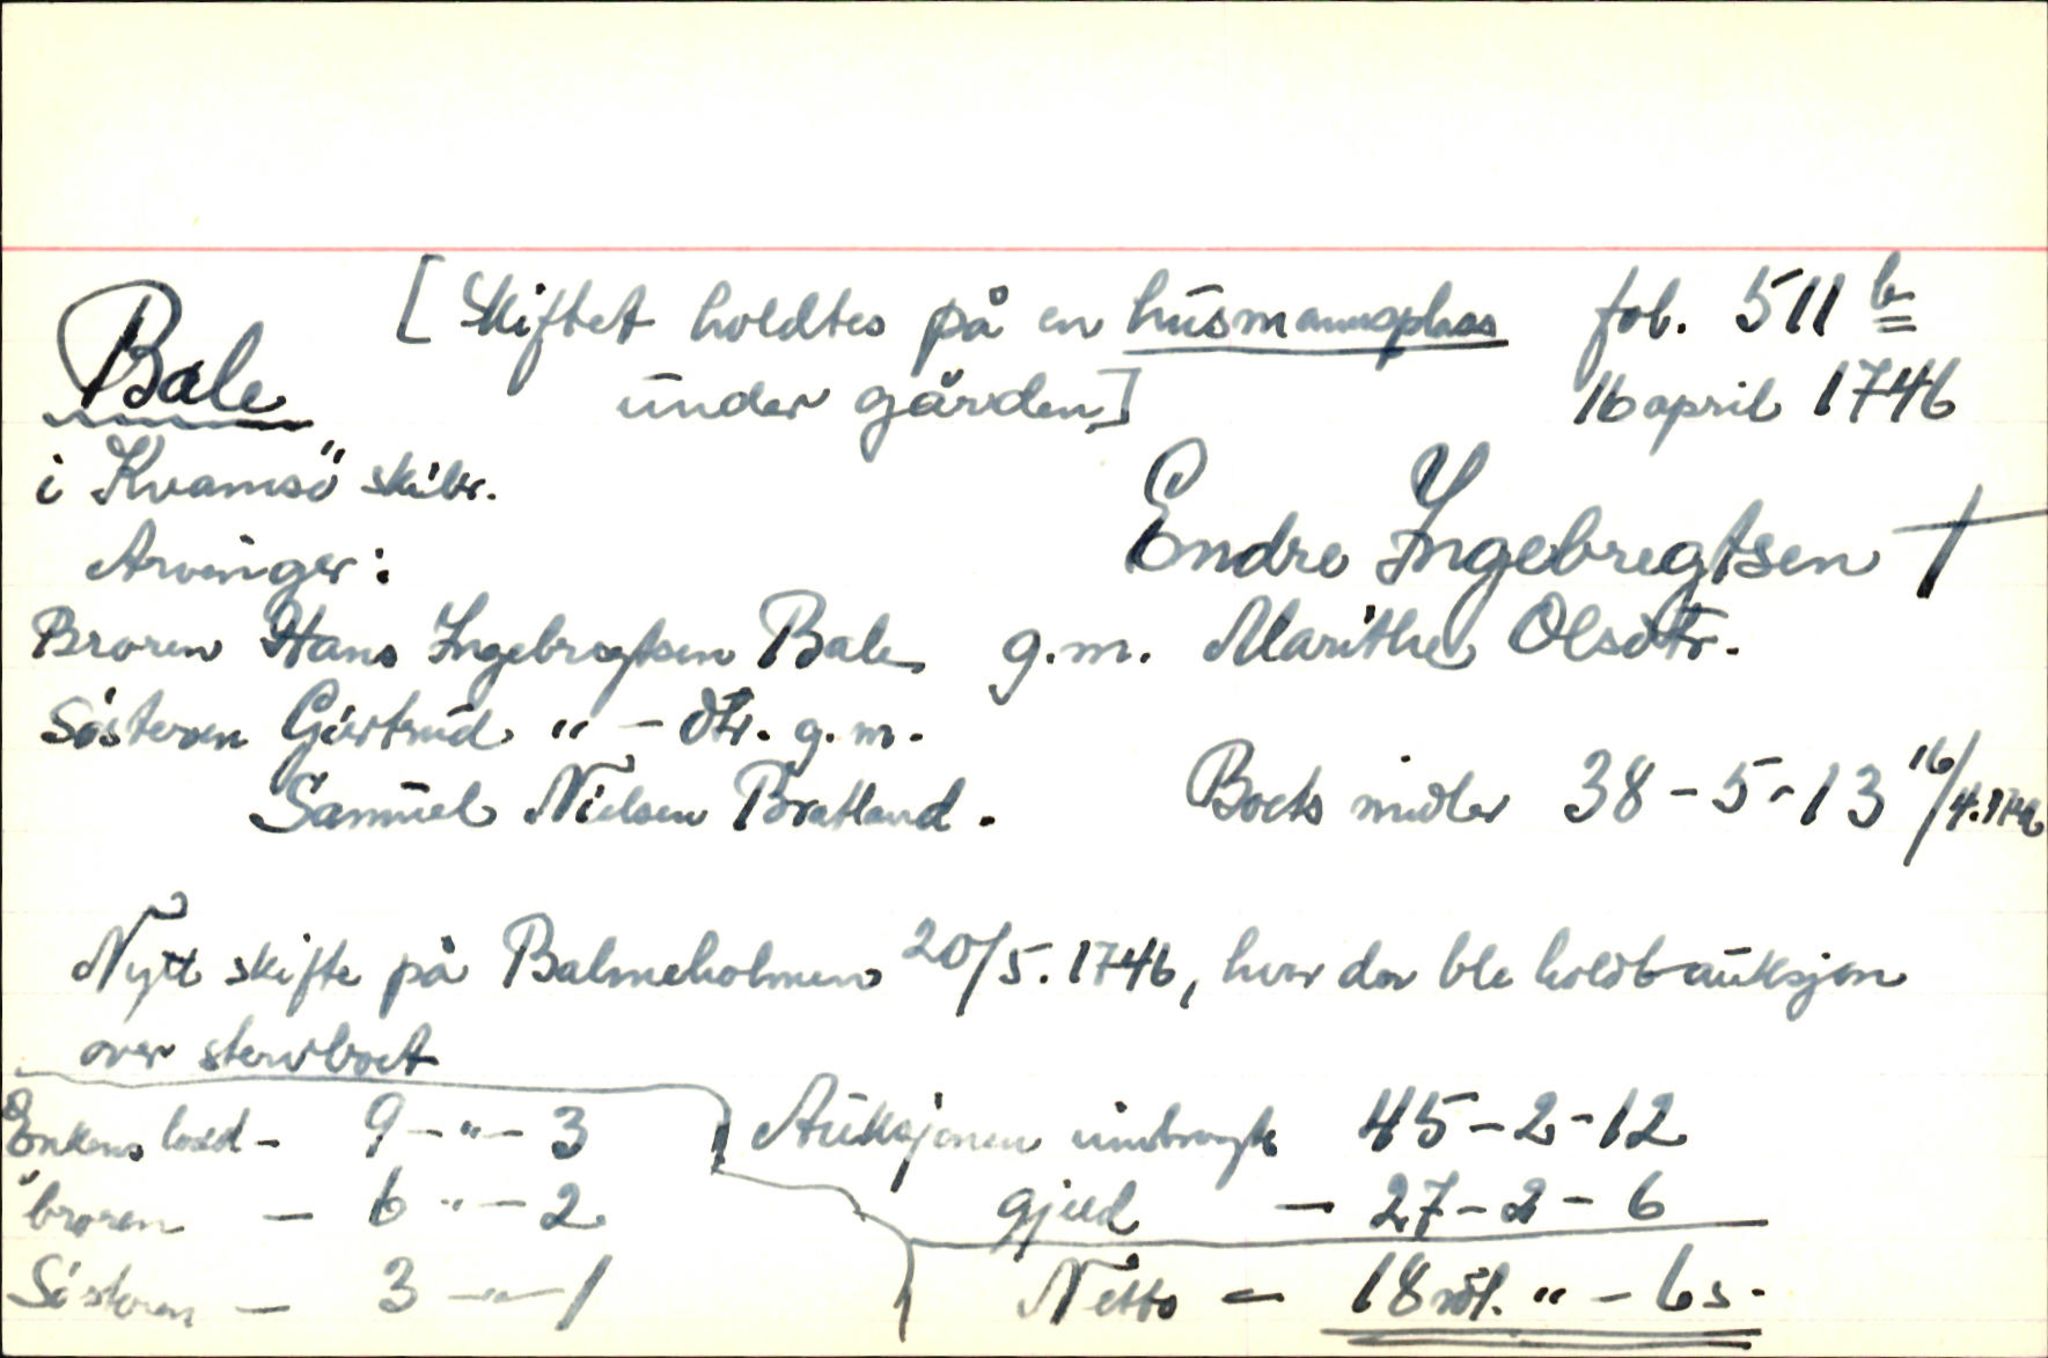 [Skiftet holdtes på en husmannsplass fol. 511 b
Bale under gården] 16 april 1746
i Kvamsö skibr.
Arvinger: Endre Ingebregtsen †
Broren Hans Ingebregtsen Bale g.m. Marithe Olsdtr.
Søsteren Giertrud " - dtr. g.m.
Samuel Nielsen Bratland. Boets midler 38-5-13 16/4.1746
Nytt skifte på Balmeholmen 20/5.1746, hvor der ble holdt auksjon
over stervboet
Enkens lodd - 9 - " - 3 Auksjonen innbragte 45-2-12
broren - 6 " - 2 gjeld - 27-2-6
Søsteren - 3 - " - 1 Netto - 18 rdl. " - 6 s.